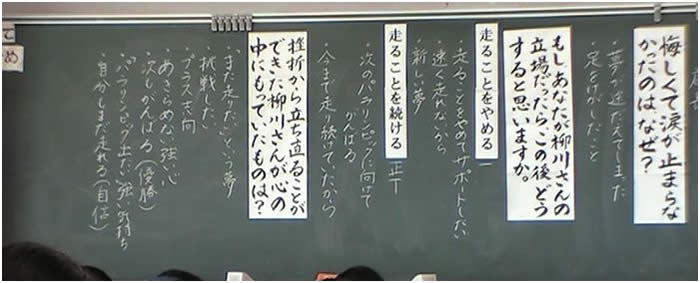 悔しくて涙が止まらな
かったのは、なぜ？
・夢が途だえてしまった
・足をけがしたこと
もしあなたが柳川さんの
立場だったら、この後どう
すると思いますか。
走ることをやめる 一
・走ることをやめてサポートしたい
・速く走れないから
・新しい夢
走ることを続ける 正丅
・次のパラリンピックに向けて
がんばる
・今まで走り続けていたから
挫折から立ち直ることが
できた柳川さんが心の
中にもっていたものは？
・「まだ走りたい」という夢
・挑戦した。
・プラス志向
・あきらめない強い心
・次もがんばる（優勝）
・パラリンピック出たい強い気持ち
・自分はまだ走れる（自信）
め